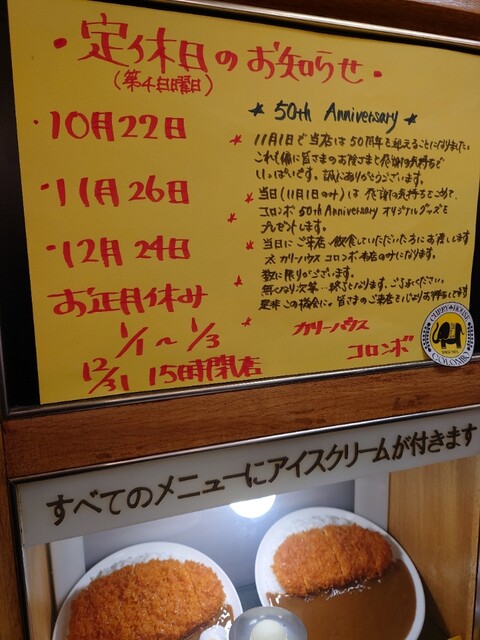 ・定休日のお知らせ・
(第4日曜日)
・10月22日
・11月26日
・12月24日
お正月休み
1/1〜1/3
12/31 15時閉店
★ 50th Anniversary ★
11月1日で当店は50周年を迎えることになりました。
これも偏に皆さまのお陰さまと感謝の気持ちで
いっぱいです。誠にありがとうございます。
当日(11月1日のみ)は 感謝の気持ちをこめて、
コロンボ 50th Anniversary オリジナルグッズを
プレゼントします。
当日にご来店・飲食していただいた方にお渡しします
カリーハウス コロンボ 本店のみになります。
数に限りがございます。
無くなり次第 終了となります。ご了承ください。
是非この機会に。皆さまのご来店を心よりお待ちしてます
カリーハウス
コロンボ
CURRY HOUSE
COLOMBO
すべてのメニューにアイスクリームが付きます